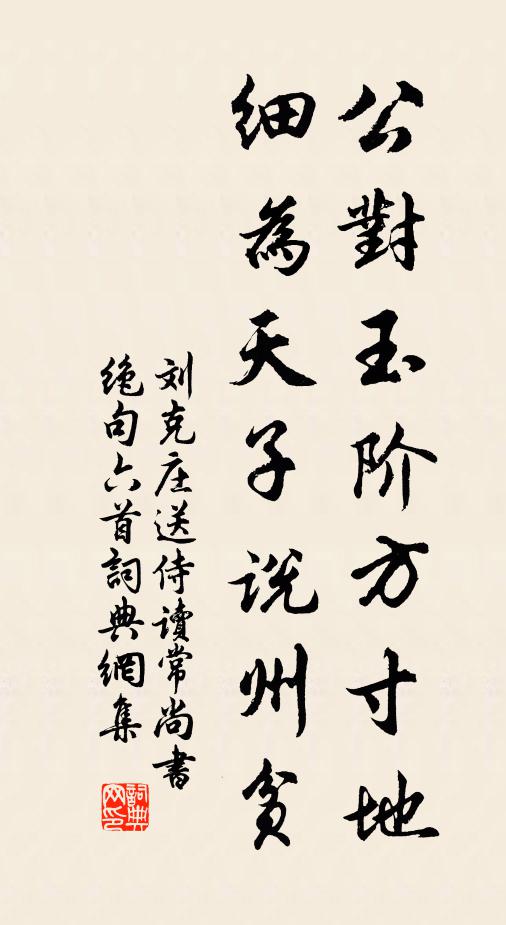 公對玉阶方寸地
细為天子说州貧
刘克庄送侍讀常尚書
绝句六首詞典網集
詞典
网印